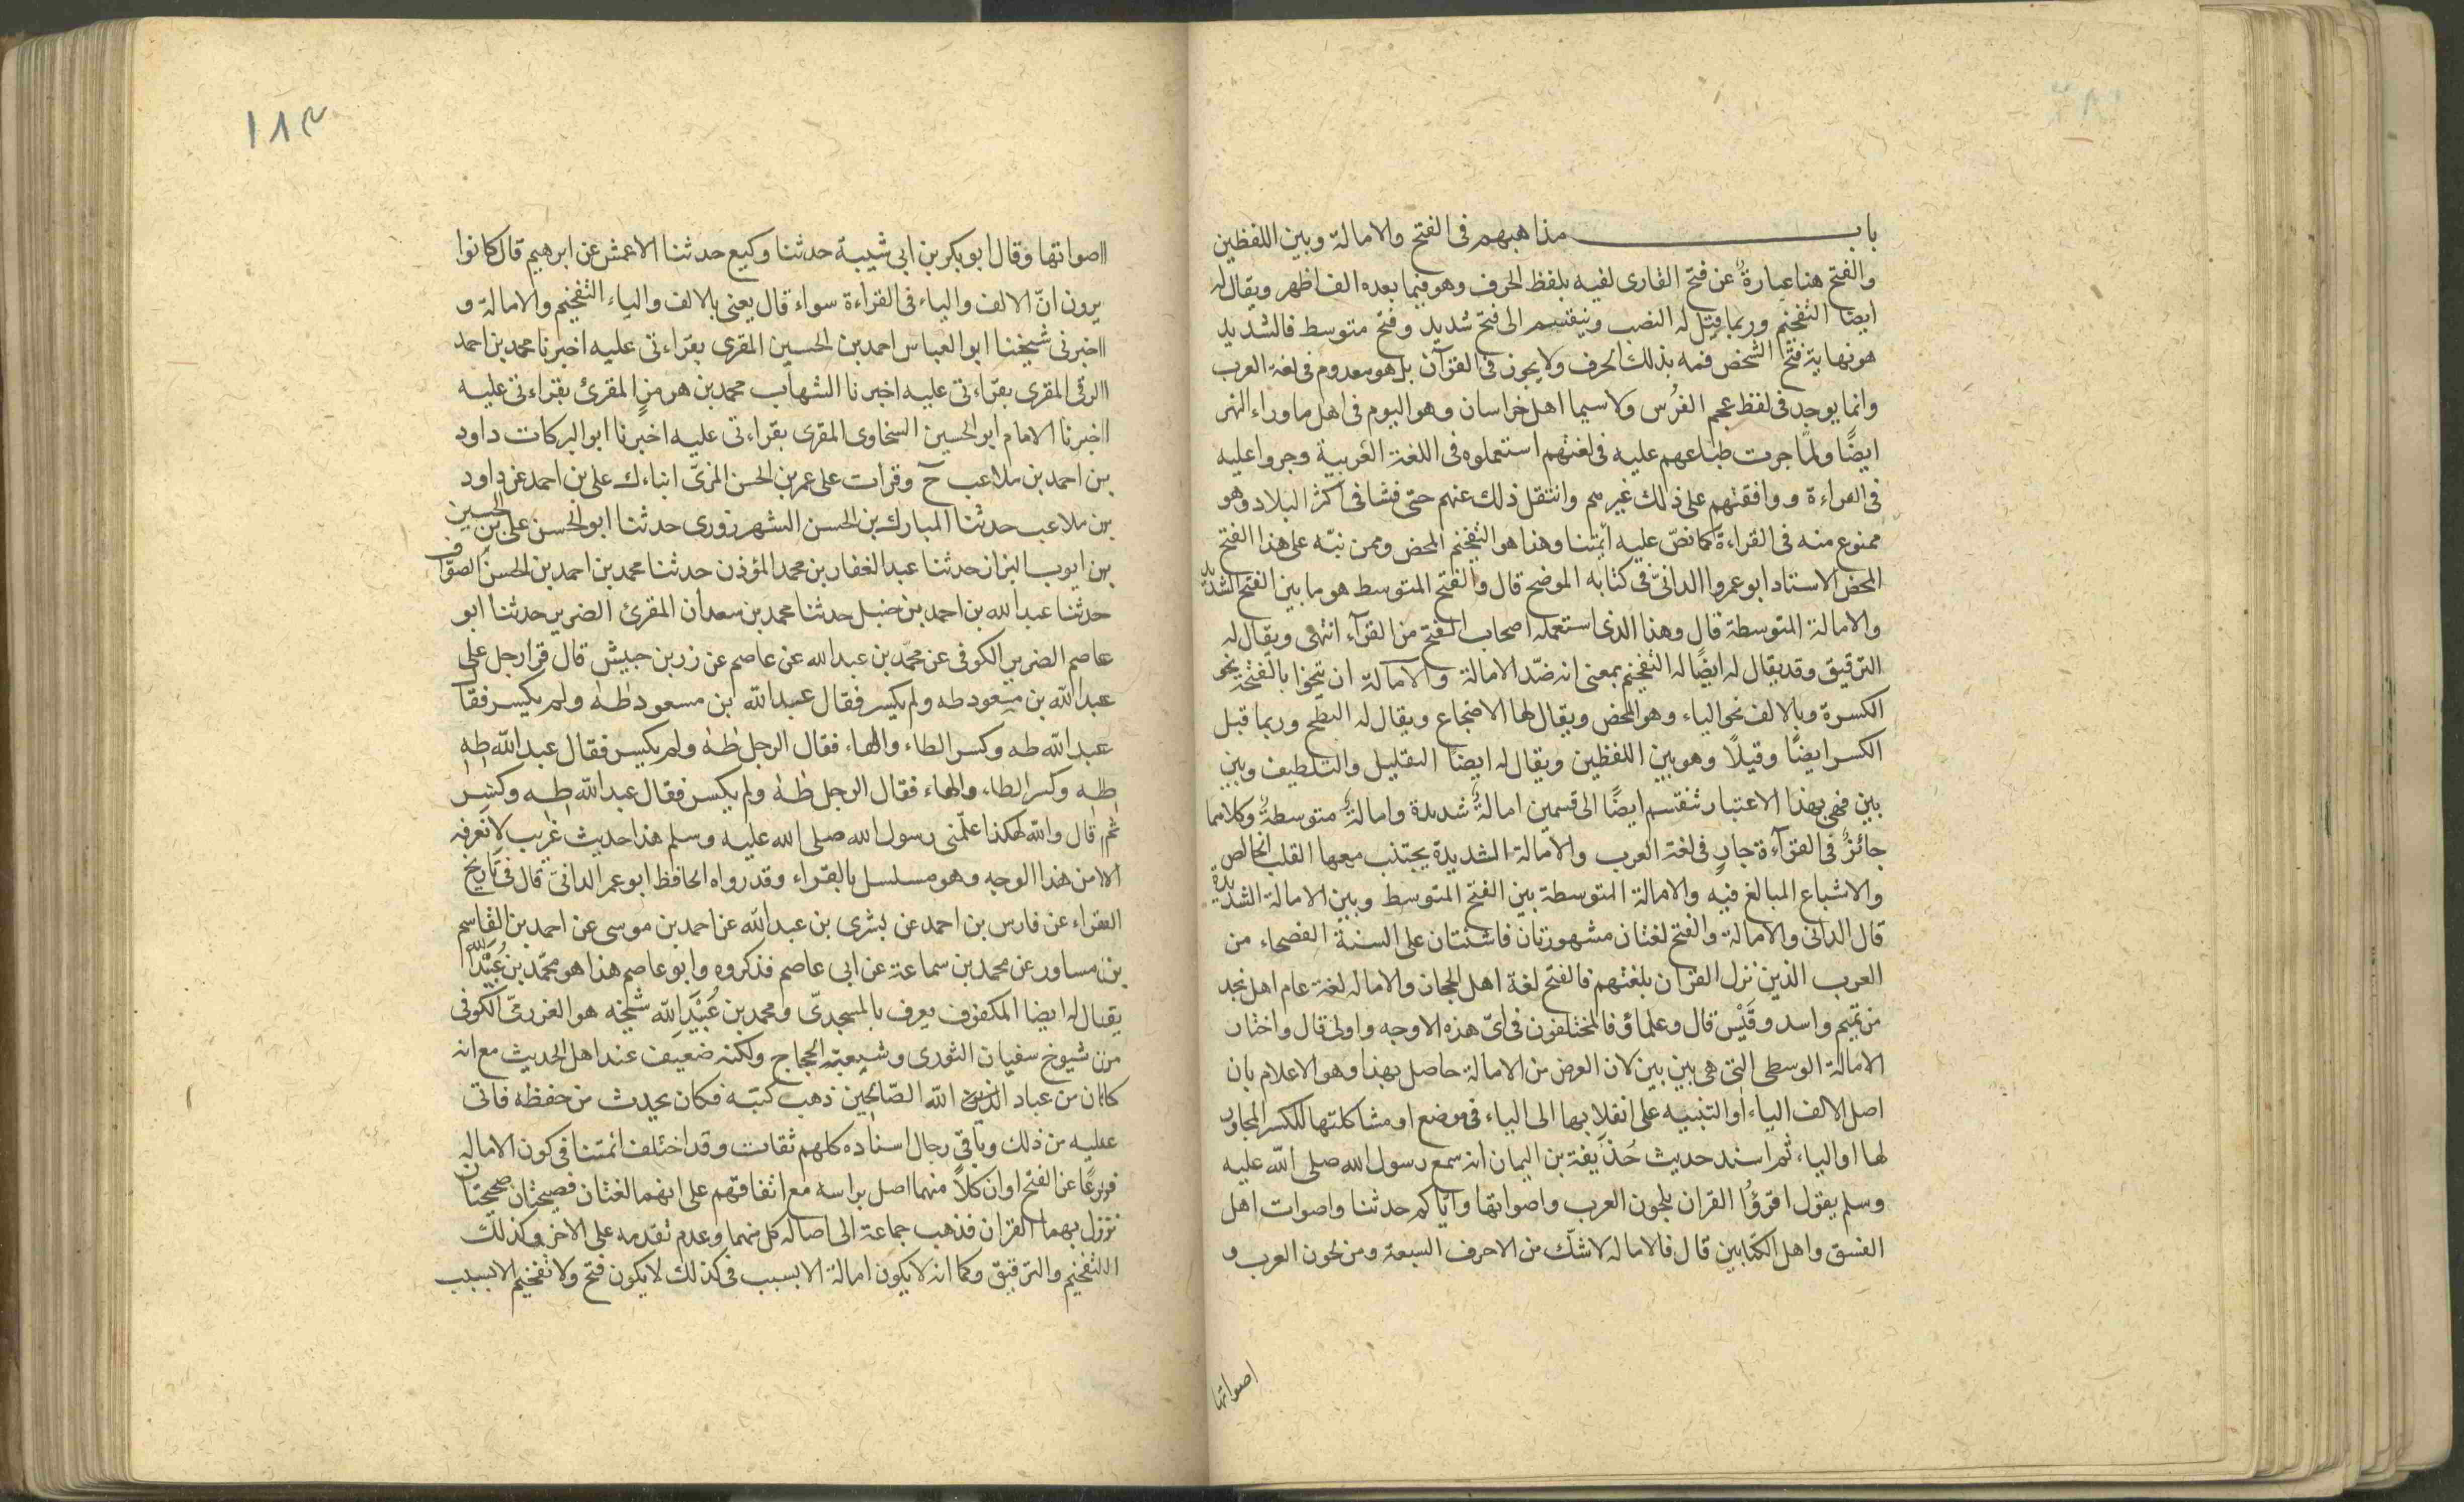 باب مذاهبهم فى الفتح والامالة وبين اللفظين
والفتح هنا عبارةٌ عن فتح القارى لفيه بلفظ الحرف وهو فيما بعده الف اظهر ويقال له
ايضا التفخيم وربما قيل له النصب وينقسم الى فتح شديد وفتح متوسط فالشديد
هو نهاية فتح الشخص فمه بذلك الحرف ولا يجوز فى القرآن بل هو معدوم فى لغة العرب
وانما يوجد فى لفظ عجم الفُرْس ولا سيما اهل خراسان وهو اليوم فى اهل ما وراء النهر
ايضًا ولمّا جرت طباعهم عليه فى لغتهم استعملوه فى اللغة العربية وجروا عليه
فى القراءة ووافقهم على ذلك غيرهم وانتقل ذلك عنهم حتى فشا فى اكثر البلاد وهو
ممنوع منه فى القراءة كما نصّ عليه أئمتنا وهذا هو التفخيم المحض وممن نبّه على هذا الفتح
المحض الاستاد ابو عمروا الدانىّ فى كتابه الموضح قال والفتح المتوسط هو ما بين الفتح الشديد
والامالة المتوسطة قال وهذا الذى استعمله اصحاب الفتح من القرآء انتهى ويقال له
الترقيق وقد يقال له ايضًا له التفخيم بمعنى انه ضدّ الامالة والامالة ان تنحوا بالفتحة نحو
الكسرة وبالالف نحو الياء وهو المحض ويقال لها الاضجاع ويقال له البطح وربما قيل
الكسر ايضًا وقيلاً وهو بين اللفظين ويقال له ايضا التقليل والتلطيف وبين
بين فهى بهذا الاعتبار تنقسم ايضًا الى قسمين امالةٌ شديدة وامالةٌ متوسطةٌ وكلاهما
جائزٌ فى القرآءة جارٍ فى لغة العرب والامالة الشديدة يجتنب معها القلب الخالص
والاشباع المبالغ فيه والامالة المتوسطة بين الفتح المتوسط وبين الامالة الشديدة
قال الدانى والامالة والفتح لغتان مشهورتان فاشيتان على السنة الفصحاء من
العرب الذين نزل القران بلغتهم فالفتح لغة اهل الحجاز والامالة لغة عام اهل نجد
من تميم واسد وقَيْس قال وعلماؤ فالمختلفون فى اىّ هذه الاوجه واولى قال واختار
الامالة الوسطى التى هى بين بين لان الغرض من الامالة حاصل بهذا وهو الاعلام بان
اصل الالف الياء او التنبيه على انقلابها الى الياء فى موضع او مشاكلتها للكسر المجاور
لها او الياء ثم اسند حديث حُذَيفة بن اليمان انه سمع رسول الله صلى الله عليه
وسلم يقول اقرؤُا القران بلحون العرب واصواتها واياكم حدثنا واصوات اهل
الفسق واهل الكتابين قال فالامالة لا شكّ من الاحرف السبعة ومن لحون العرب و
اصواتها
١٨٣
اصواتها وقال ابو بكر بن ابى شيبة حدثنا وكيع حدثنا الاعمش عن ابرهيم قال كانوا
يرون انّ الالف والياء فى القراءة سواء قال يعنى بالالف والياء التفخيم والامالة و
اخبرنى شيخنا ابو العباس احمد بن الحسين المقرى بقراءتى عليه اخبرنا محمد بن احمد
الرقى المقرى بقراءتى عليه اخبرنا الشهاب محمد بن هرمزٍ المقرئ بقراءتى عليه
اخبرنا الامام ابو الحسين السخاوى المقرى بقراءتى عليه اخبرنا ابو البركات داود
بن احمد بن ملاعب حٓ وقرات على عمر بن الحسن المزىّ انباءك على بن احمد عن داود
بن ملاعب حدثنا المبارك بن الحسن الشهرزورى حدثنا ابو الحسن على بن الحسين
بن ايوب البزار حدثنا عبد الغفار بن محمد المؤذن حدثنا محمد بن احمد بن الحسن الصواف
حدثنا عبد الله بن احمد بن حنبل حدثنا محمد بن سعدان المقرئ الضرير حدثنا ابو
عاصم الضرير الكوفى عن محمّد بن عبد الله عن عاصم عن زر بن حبيش قال قرا رجل على
عبد الله بن مسعود طه ولم يكسر فقال عبد الله ابن مسعود طٰهٰ ولم يكسر فقا
عبد الله طه وكسر الطاء والهاء فقال الرجل طٰهٰ ولم يكسر فقال عبد الله طه
طه وكسر الطاء والهاء فقال الرجل طٰهٰ ولم يكسر فقال عبد الله طه وكسر
ثم قال والله لهكذا علّمنى رسول الله صلى الله عليه وسلم هذا حديث غريب لا نعرفه
الا من هذا الوجه وهو مسلسل بالقراء وقد رواه الحافظ ابو عمر الدانىّ قال فى تاريخ
القراء عن فارس بن احمد عن بشرى بن عبد الله عن احمد بن موسى عن احمد بن القاسم
بن مساور عن محمد بن سماعة عن ابى عاصم فذكروه وابو عاصم هذا هو محمّد بن عُبَيْد الله
يقال له ايضا المكفوف يعرف بالمسجدىّ ومحمد بن عُبَيْدِ الله شيخه هو العزرمىّ الكوفى
من شيوخ سفيان الثورى وشيعبة الحجاج ولكنه ضعيف عند اهل الحديث مع انه
كان من عباد الله الصّالحِين ذهب كتبه فكان يحدث من حفظه فاتى
عليه من ذلك وباقىِ رجال اسناده كلهم ثقات وقد اختلف ائمتنا فى كون الامالة
فرعًا عن الفتح او ان كلاً منهما اصل براسه مع اتفاقهم على انهما لغتان فصيحتان صحيحتان
نزول بهما القران فذهب جماعة الى اصالة كل منهما وعدم تقدمه على الاخر وكذلك
التفخيم والترقيق وكما انه لا يكون امالة الا بسبب فى كذلك لا يكون فتح ولا تفخيم الا بسبب